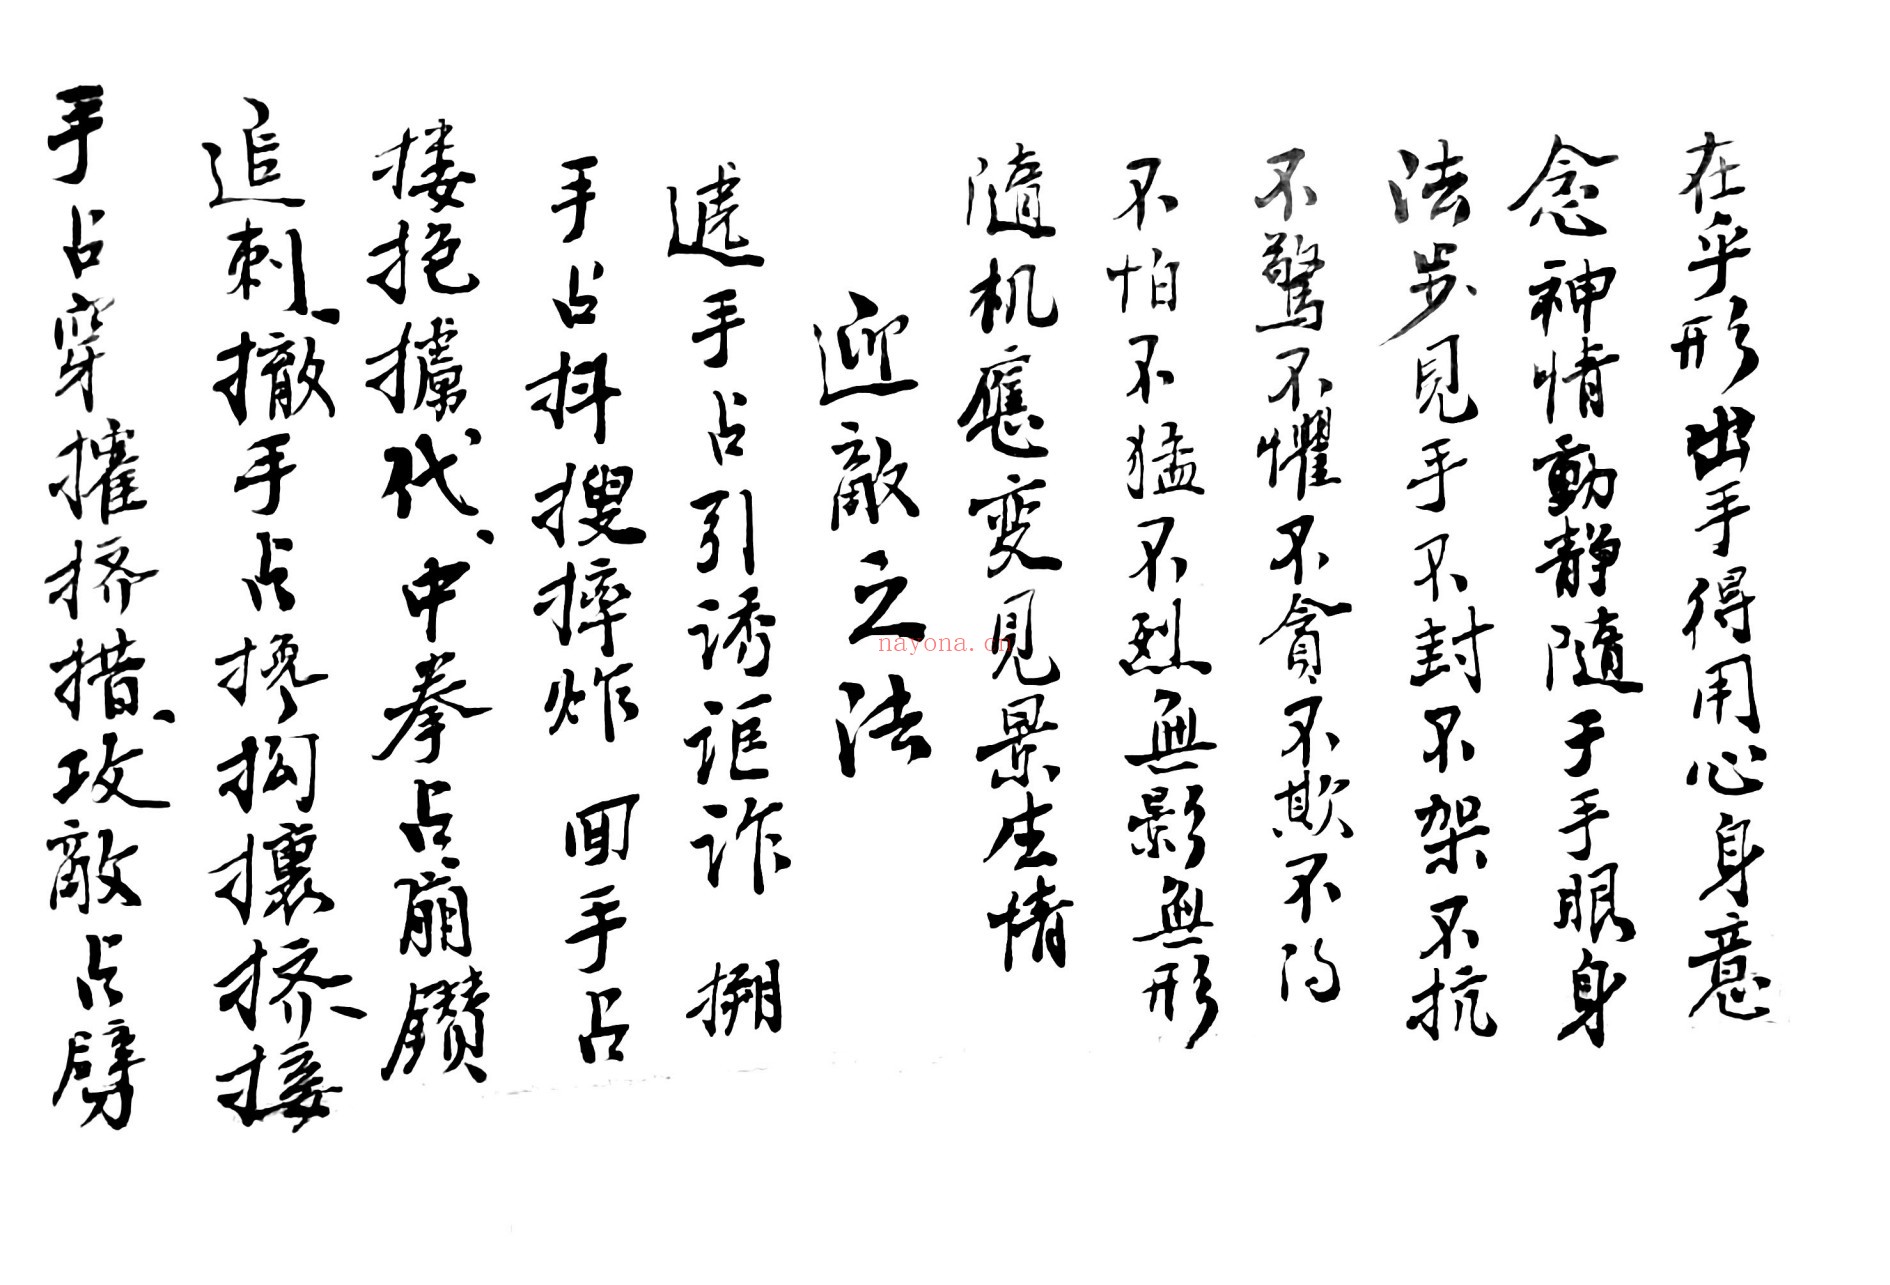 在乎形出手得用心身意
念神情動静隨于手眼身
法步見手不封不架不抗
不驚不懼不貪不欺不
不怕不猛不烈無影無形
隨机應变見景生情
迎敵之法
遞手占引诱诓诈 掤
手占抖搜摔炸 回手占
搂抱攄代、中拳占崩鑽
追刺、撤手占搀掏攘挤、接
手占穿攉挤措、攻敵占劈
nayona.cn